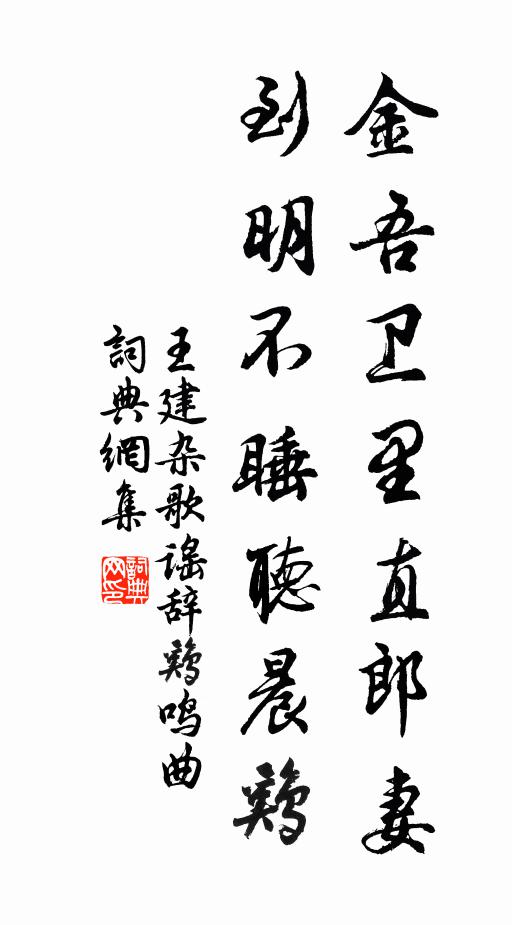 金吾卫里直郎妻
到明不睡聽晨鷄
王建杂歌谣辞鷄鸣曲
詞典網集
詞典网印